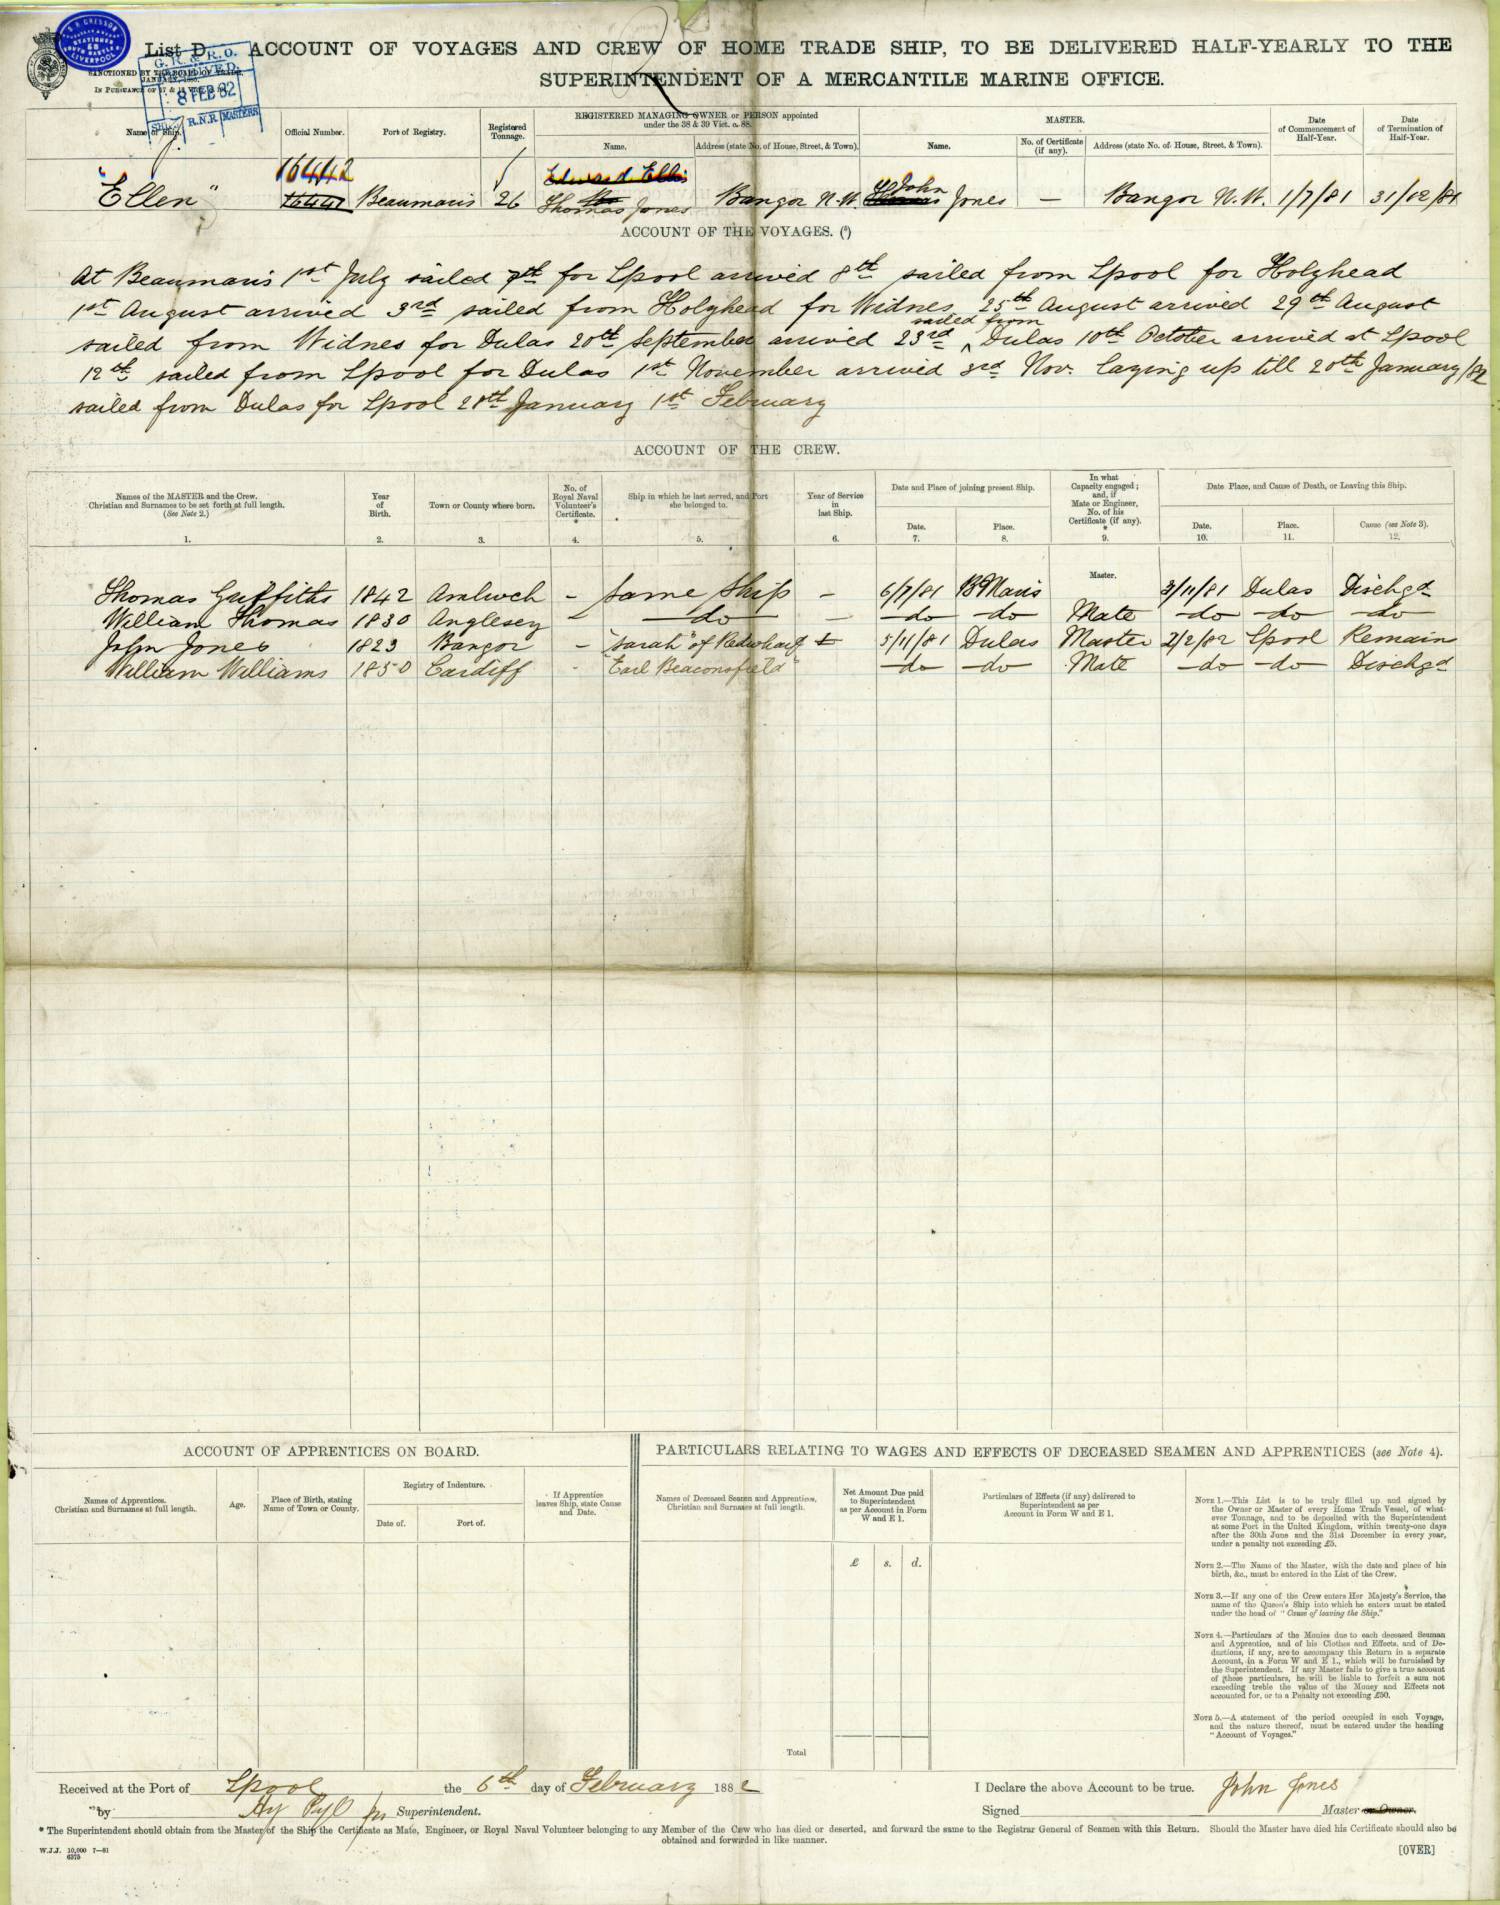 List D.
ACCOUNT OF VOYAGES AND CREW OF HOME TRADE SHIP, TO BE DELIVERED HALF-YEARLY TO THE
SUPERINTENDENT OF A MERCANTILE MARINE OFFICE.
SANCTIONED BY THE BOARD OF TRADE
G. R. & R. O.
RECEIVED.
8 FEB 82
R.N.R. MASTERS
STATIONER
LIVERPOOL
Name of Ship. Official Number. Port of Registry. Registered Tonnage. REGISTERED MANAGING OWNER or PERSON appointed under the 38 & 39 Vict. c. 88. MASTER. Date of Commencement of Half-Year. Date of Termination of Half-Year.
Name. Address (state No. of House, Street, & Town). Name. No. of Certificate (if any). Address (state No. of House, Street, & Town).
16442 Edward Ellis John
"Ellen" Beaumaris 26 Thomas Jones Bangor N.W. Jones — Bangor N.W. 1/7/81 31/12/81
ACCOUNT OF THE VOYAGES. (*)
At Beaumaris 1st July sailed 7th for Lpool arrived 8th sailed from Lpool for Holyhead
1st August arrived 3rd sailed from Holyhead for Widnes 25th August arrived 29th August
sailed from Widnes for Dulas 20th September arrived 23rd sailed from Dulas 10th October arrived at Lpool
12th sailed from Lpool for Dulas 1st November arrived 3rd Nov. laying up till 20th January/82
sailed from Dulas for Lpool 28th January 1st February
ACCOUNT OF THE CREW.
Names of the MASTER and the Crew. Christian and Surnames to be set forth at full length. (See Note 2.) Year of Birth. Town or County where born. No. of Royal Naval Volunteer's Certificate. * Ship in which he last served, and Port she belonged to. Year of Service in last Ship. Date and Place of joining present Ship. In what Capacity engaged; and, if Mate or Engineer, No. of his Certificate (if any). * Date Place, and Cause of Death, or Leaving this Ship.
Date. Place. Date. Place. Cause (see Note 3).
1. 2. 3. 4. 5. 6. 7. 8. 9. 10. 11. 12.
Thomas Griffiths 1842 Amlwch - Same Ship - 6/7/81 BMaris Master. 3/11/81 Dulas Dischgd
William Thomas 1830 Anglesey - do - do do Mate do do do
John Jones 1823 Bangor - "Sarah" of 5/11/81 Dulas Master 2/2/82 Lpool Remain
William Williams 1850 Cardiff - "Earl Beaconsfield" do do Mate do do Dischgd
ACCOUNT OF APPRENTICES ON BOARD.
Names of Apprentices. Christian and Surnames at full length. Age. Place of Birth, stating Name of Town or County. Registry of Indenture. Date of. Port of. If Apprentice leaves Ship, state Cause and Date.
PARTICULARS RELATING TO WAGES AND EFFECTS OF DECEASED SEAMEN AND APPRENTICES (see Note 4).
Names of Deceased Seamen and Apprentices, Christian and Surnames at full length. Net Amount Due paid to Superintendent as per Account in Form W and E 1. Particulars of Effects (if any) delivered to Superintendent as per Account in Form W and E 1.
£ s. d.
Total
NOTE 1.—This List is to be truly filled up and signed by
the Owner or Master of every Home Trade Vessel, of what-
ever Tonnage, and to be deposited with the Superintendent
at some Port in the United Kingdom, within twenty-one days
after the 30th June and the 31st December in every year,
under a penalty not exceeding £5.
NOTE 2.—The Name of the Master, with the date and place of his
birth, &c., must be entered in the List of the Crew.
NOTE 3.—If any one of the Crew enters Her Majesty's Service, the
name of the Queen's Ship into which he enters must be stated
under the head of "Cause of leaving the Ship."
NOTE 4.—Particulars of the Monies due to each deceased Seaman
and Apprentice, and of his Clothes and Effects, and of De-
ductions, if any, are to accompany this Return in a separate
Account, in a Form W and E 1., which will be furnished by
the Superintendent. If any Master fails to give a true account
of these particulars, he will be liable to forfeit a sum not
exceeding treble the value of the Money and Effects not
accounted for, or to a Penalty not exceeding £50.
NOTE 5.—A statement of the period occupied in each Voyage,
and the nature thereof, must be entered under the heading
"Account of Voyages."
Received at the Port of Lpool the 6th day of February 1882
by Superintendent.
I Declare the above Account to be true. John Jones
Signed Master or Owner.
* The Superintendent should obtain from the Master of the Ship the Certificate as Mate, Engineer, or Royal Naval Volunteer belonging to any Member of the Crew who has died or deserted, and forward the same to the Registrar General of Seamen with this Return. Should the Master have died his Certificate should also be
obtained and forwarded in like manner.
W.J.J. 10,000 7—81
6375
[OVER]